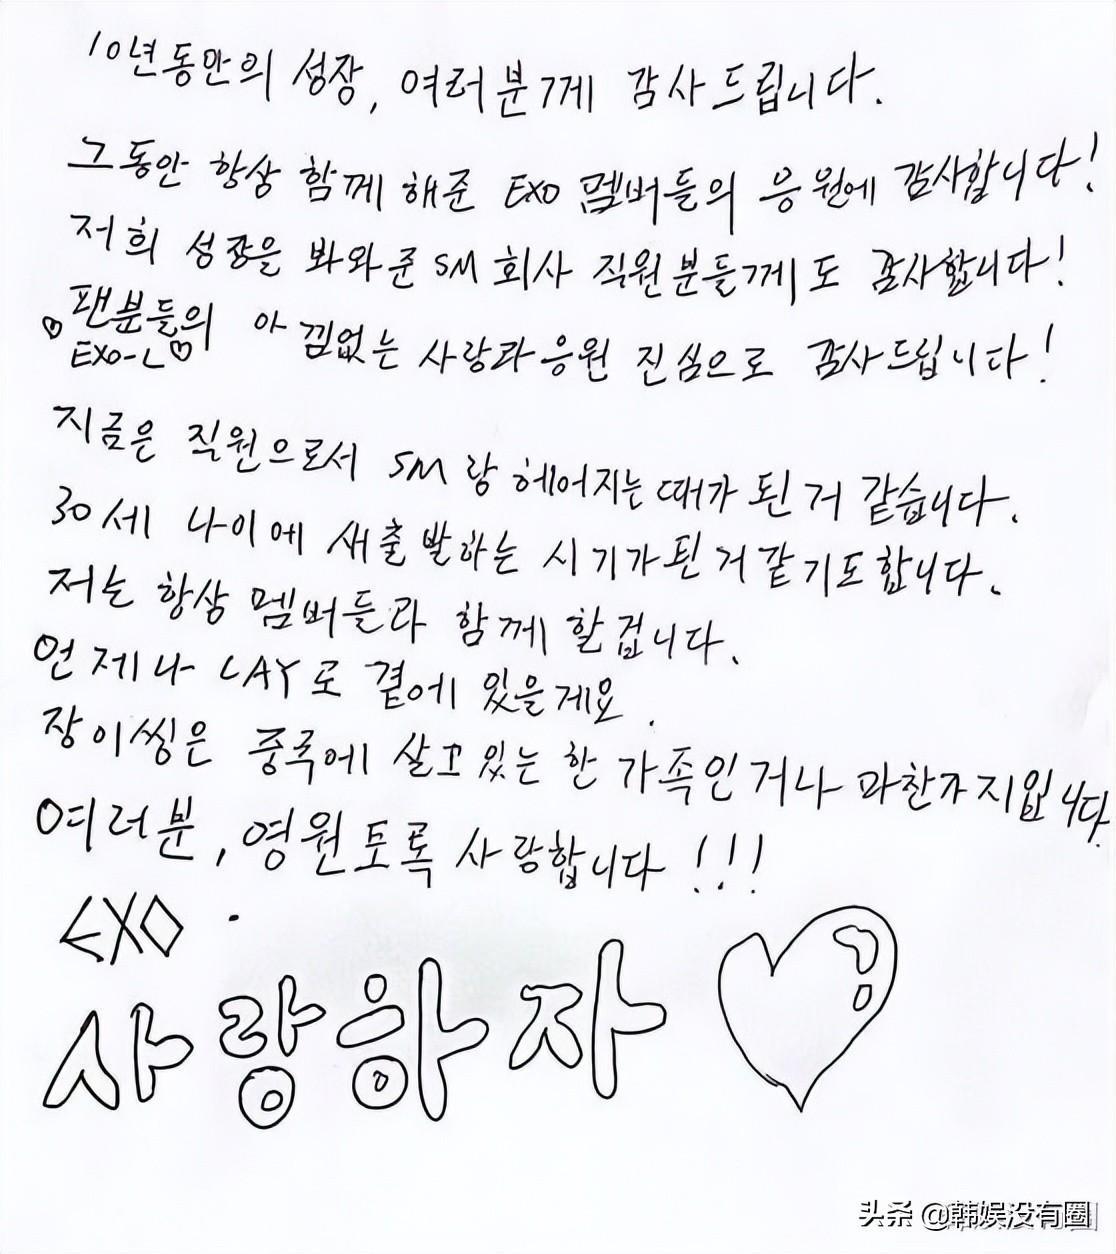 10년동안의 성장, 여러분께 감사드립니다.
그동안 항상 함께 해준 EXO 멤버들의 응원에 감사합니다!
저희 성장을 봐와준 SM 회사 직원분들께도 감사합니다!
♡팬분들의 아낌없는 사랑과 응원 진심으로 감사드립니다!
EXO-L♡
지금은 직원으로서 SM랑 헤어지는 때가 된 거 같습니다.
30세 나이에 새출발하는 시기가 된 거 같기도합니다.
저는 항상 멤버들과 함께 할겁니다.
언제나 LAY로 곁에 있을게요.
장이씽은 중국에 살고있는 한 가족인거나 마찬가지입니다.
여러분, 영원토록 사랑합니다!!!
EXO.
사랑하자♡
头条 @韩娱没有圈